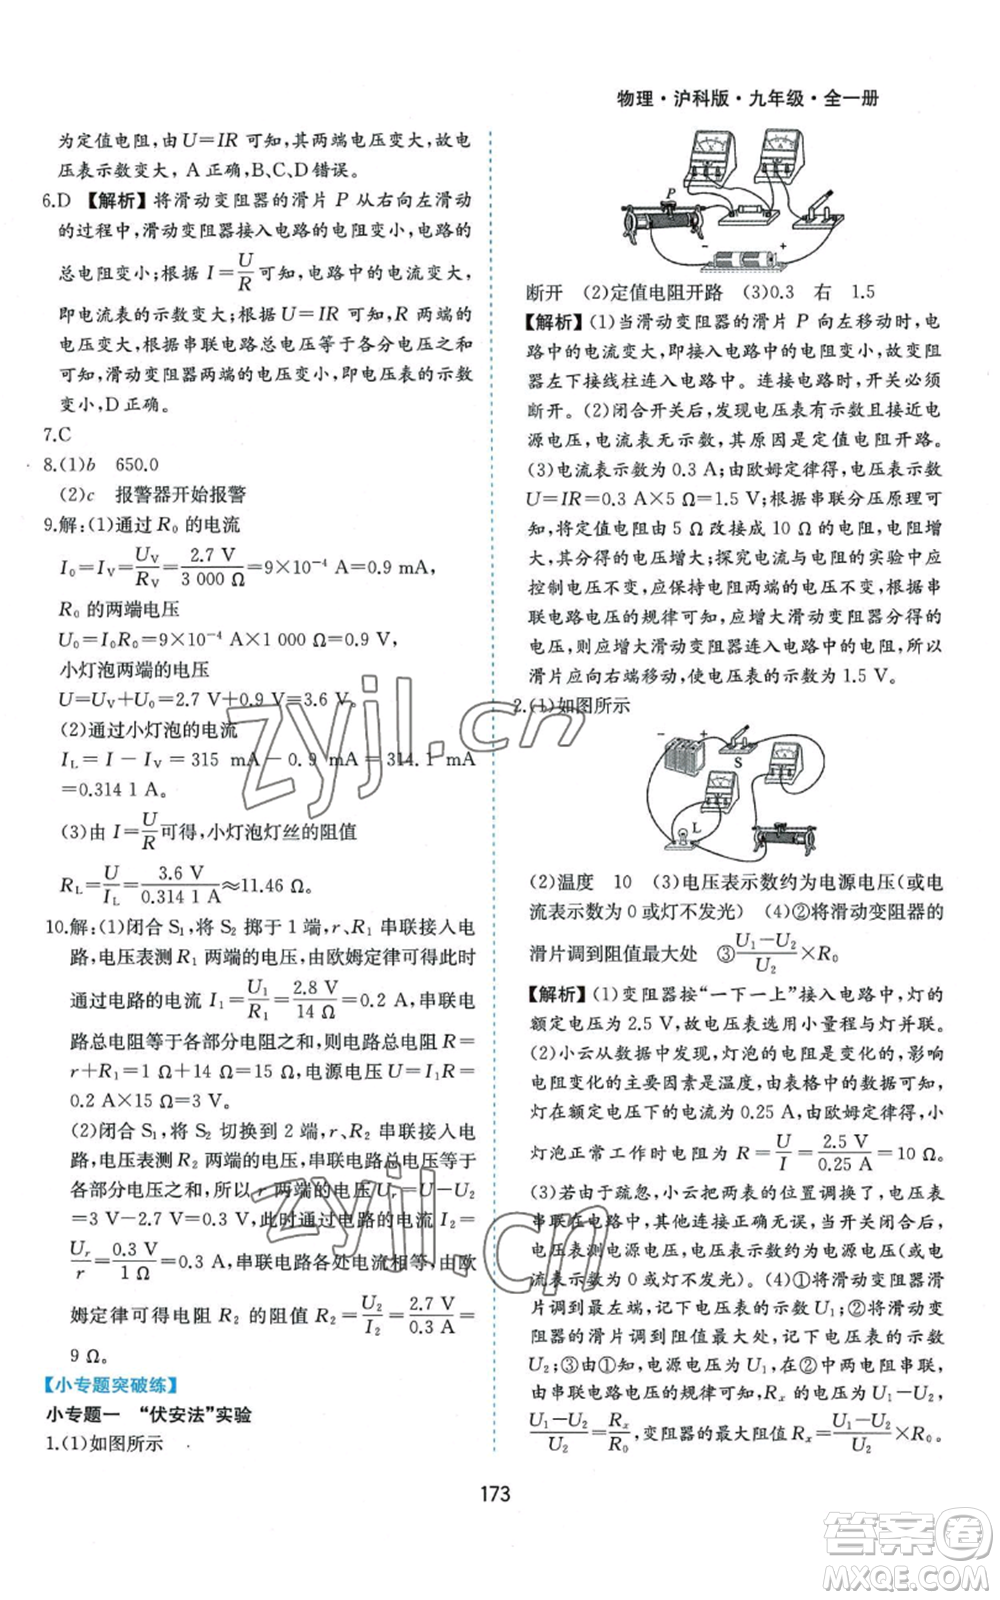 物理·沪科版·九年级·全一册
为定值电阻,由U=IR可知,其两端电压变大,故电
压表示数变大,A正确,B、C、D错误。
6.D 【解析】将滑动变阻器的滑片P从右向左滑动
的过程中,滑动变阻器接入电路的电阻变小,电路的
总电阻变小;根据I=U/R可知,电路中的电流变大,
即电流表的示数变大;根据U=IR可知,R两端的
电压变大,根据串联电路总电压等于各分电压之和
可知,滑动变阻器两端的电压变小,即电压表的示数
变小,D正确。
7.C
8.(1)b 650.0
(2)c 报警器开始报警
9.解:(1)通过R₀的电流
I₀=I_V=U_V/R_V=2.7 V/3 000 Ω=9×10⁻⁴ A=0.9 mA,
R₀的两端电压
U₀=I₀R₀=9×10⁻⁴ A×1 000 Ω=0.9 V,
小灯泡两端的电压
U=U_V+U₀=2.7 V+0.9 V=3.6 V。
(2)通过小灯泡的电流
I_L=I-I_V=315 mA-0.9 mA=314.1 mA
=0.314 1 A。
(3)由I=U/R可得,小灯泡灯丝的阻值
R_L=U/I_L=3.6 V/0.314 1 A≈11.46 Ω。
10.解:(1)闭合S₁,将S₂掷于1端,r、R₁串联接入电
路,电压表测R₁两端的电压,由欧姆定律可得此时
通过电路的电流I₁=U₁/R₁=2.8 V/14 Ω=0.2 A,串联电
路总电阻等于各部分电阻之和,则电路总电阻R=
r+R₁=1 Ω+14 Ω=15 Ω,电源电压U=I₁R=
0.2 A×15 Ω=3 V。
(2)闭合S₁,将S₂切换到2端,r、R₂串联接入电
路,电压表测R₂两端的电压,串联电路总电压等于
各部分电压之和,所以r两端的电压U_r=U-U₂
=3 V-2.7 V=0.3 V,此时通过电路的电流I₂=
U_r/r=0.3 V/1 Ω=0.3 A,串联电路各处电流相等,由欧
姆定律可得电阻R₂的阻值R₂=U₂/I₂=2.7 V/0.3 A=
9 Ω。
【小专题突破练】
小专题一 “伏安法”实验
1.(1)如图所示
P
- +
断开 (2)定值电阻开路 (3)0.3 右 1.5
【解析】(1)当滑动变阻器的滑片P向左移动时,电
路中的电流变大,即接入电路中的电阻变小,故变阻
器左下接线柱连入电路中。连接电路时,开关必须
断开。(2)闭合开关后,发现电压表有示数且接近电
源电压,电流表无示数,其原因可能是定值电阻开路。
(3)电流表示数为0.3 A;由欧姆定律得,电压表示数
U=IR=0.3 A×5 Ω=1.5 V;根据串联分压原理可
知,将定值电阻由5 Ω改接成10 Ω的电阻,电阻增大,
其分得的电压增大;探究电流与电阻的实验中应
控制电压不变,应保持电阻两端的电压不变,根据串
联电路电压的规律可知,应增大滑动变阻器分得的电
压,所以应增大滑动变阻器连入电路中的电阻,所以
滑片应向右端移动,使电压表的示数为1.5 V。
2.(1)如图所示
- +
S
L
(2)温度 10 (3)电压表示数约为电源电压(或电
流表示数为0或灯不发光) (4)②将滑动变阻器的
滑片调到阻值最大处 ③(U₁-U₂)/U₂×R₀
【解析】(1)变阻器按“一下一上”接入电路中,灯的
额定电压为2.5 V,故电压表选用小量程与灯并联。
(2)小云从数据中发现,灯泡的电阻是变化的,影响
电阻变化的主要因素是温度,由表格中的数据可知,
灯在额定电压下的电流为0.25 A,由欧姆定律得,小
灯泡正常工作时电阻为R=U/I=2.5 V/0.25 A=10 Ω。
(3)若由于疏忽,小云把两表的位置调换了,电压表
串联在电路中,其他连接正确无误,当开关闭合后,
电压表测电源电压,电压表示数约为电源电压(或电
流表示数为0或灯不发光)。(4)①将滑动变阻器滑
片调到最左端,记下电压表的示数U₁;②将滑动变
阻器的滑片调到阻值最大处,记下电压表的示数
U₂;③由①知,电源电压为U₁,在②中两电阻串联,
根据串联电路电压的规律可知,R_x的电压为
U₁-U₂,根据分压原理:
(U₁-U₂)/U₂=R_x/R₀,变阻器的最大阻值R_x=(U₁-U₂)/U₂×R₀。
173
zyjl.cn
zyjl.cn
答案卷
MXQE.COM